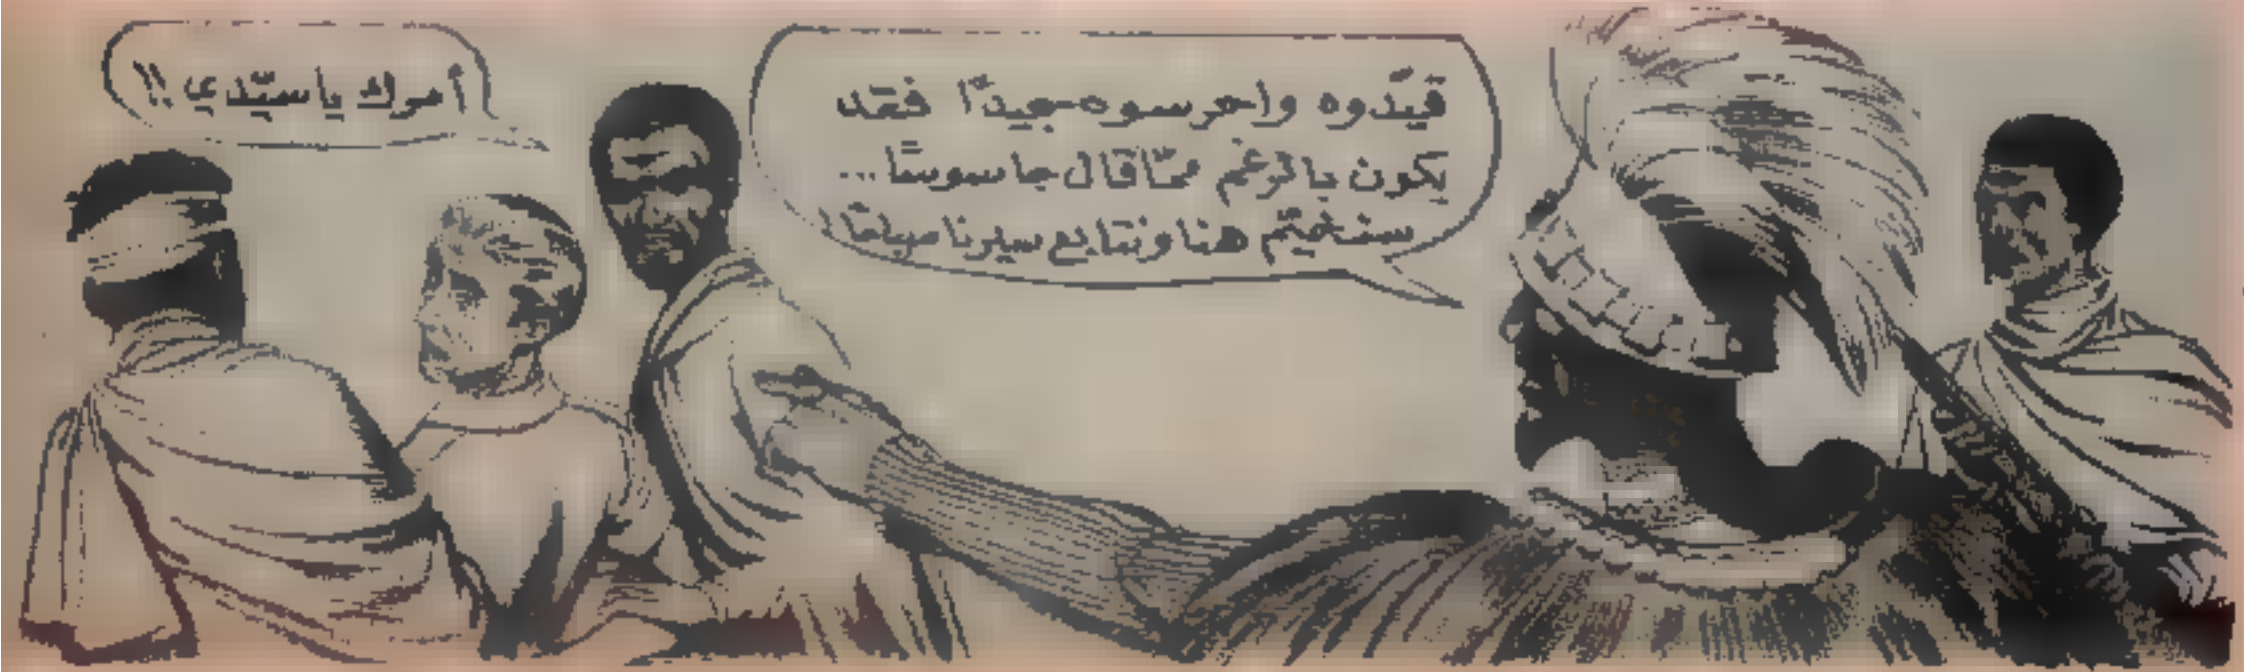 قيّدوه واحرسوه جيدًا فقد
يكون بالرغم ممّا قال جاسوسًا...
سنخيّم هنا ونتابع سيرنا صباحًا!
أمرك يا سيّدي !!